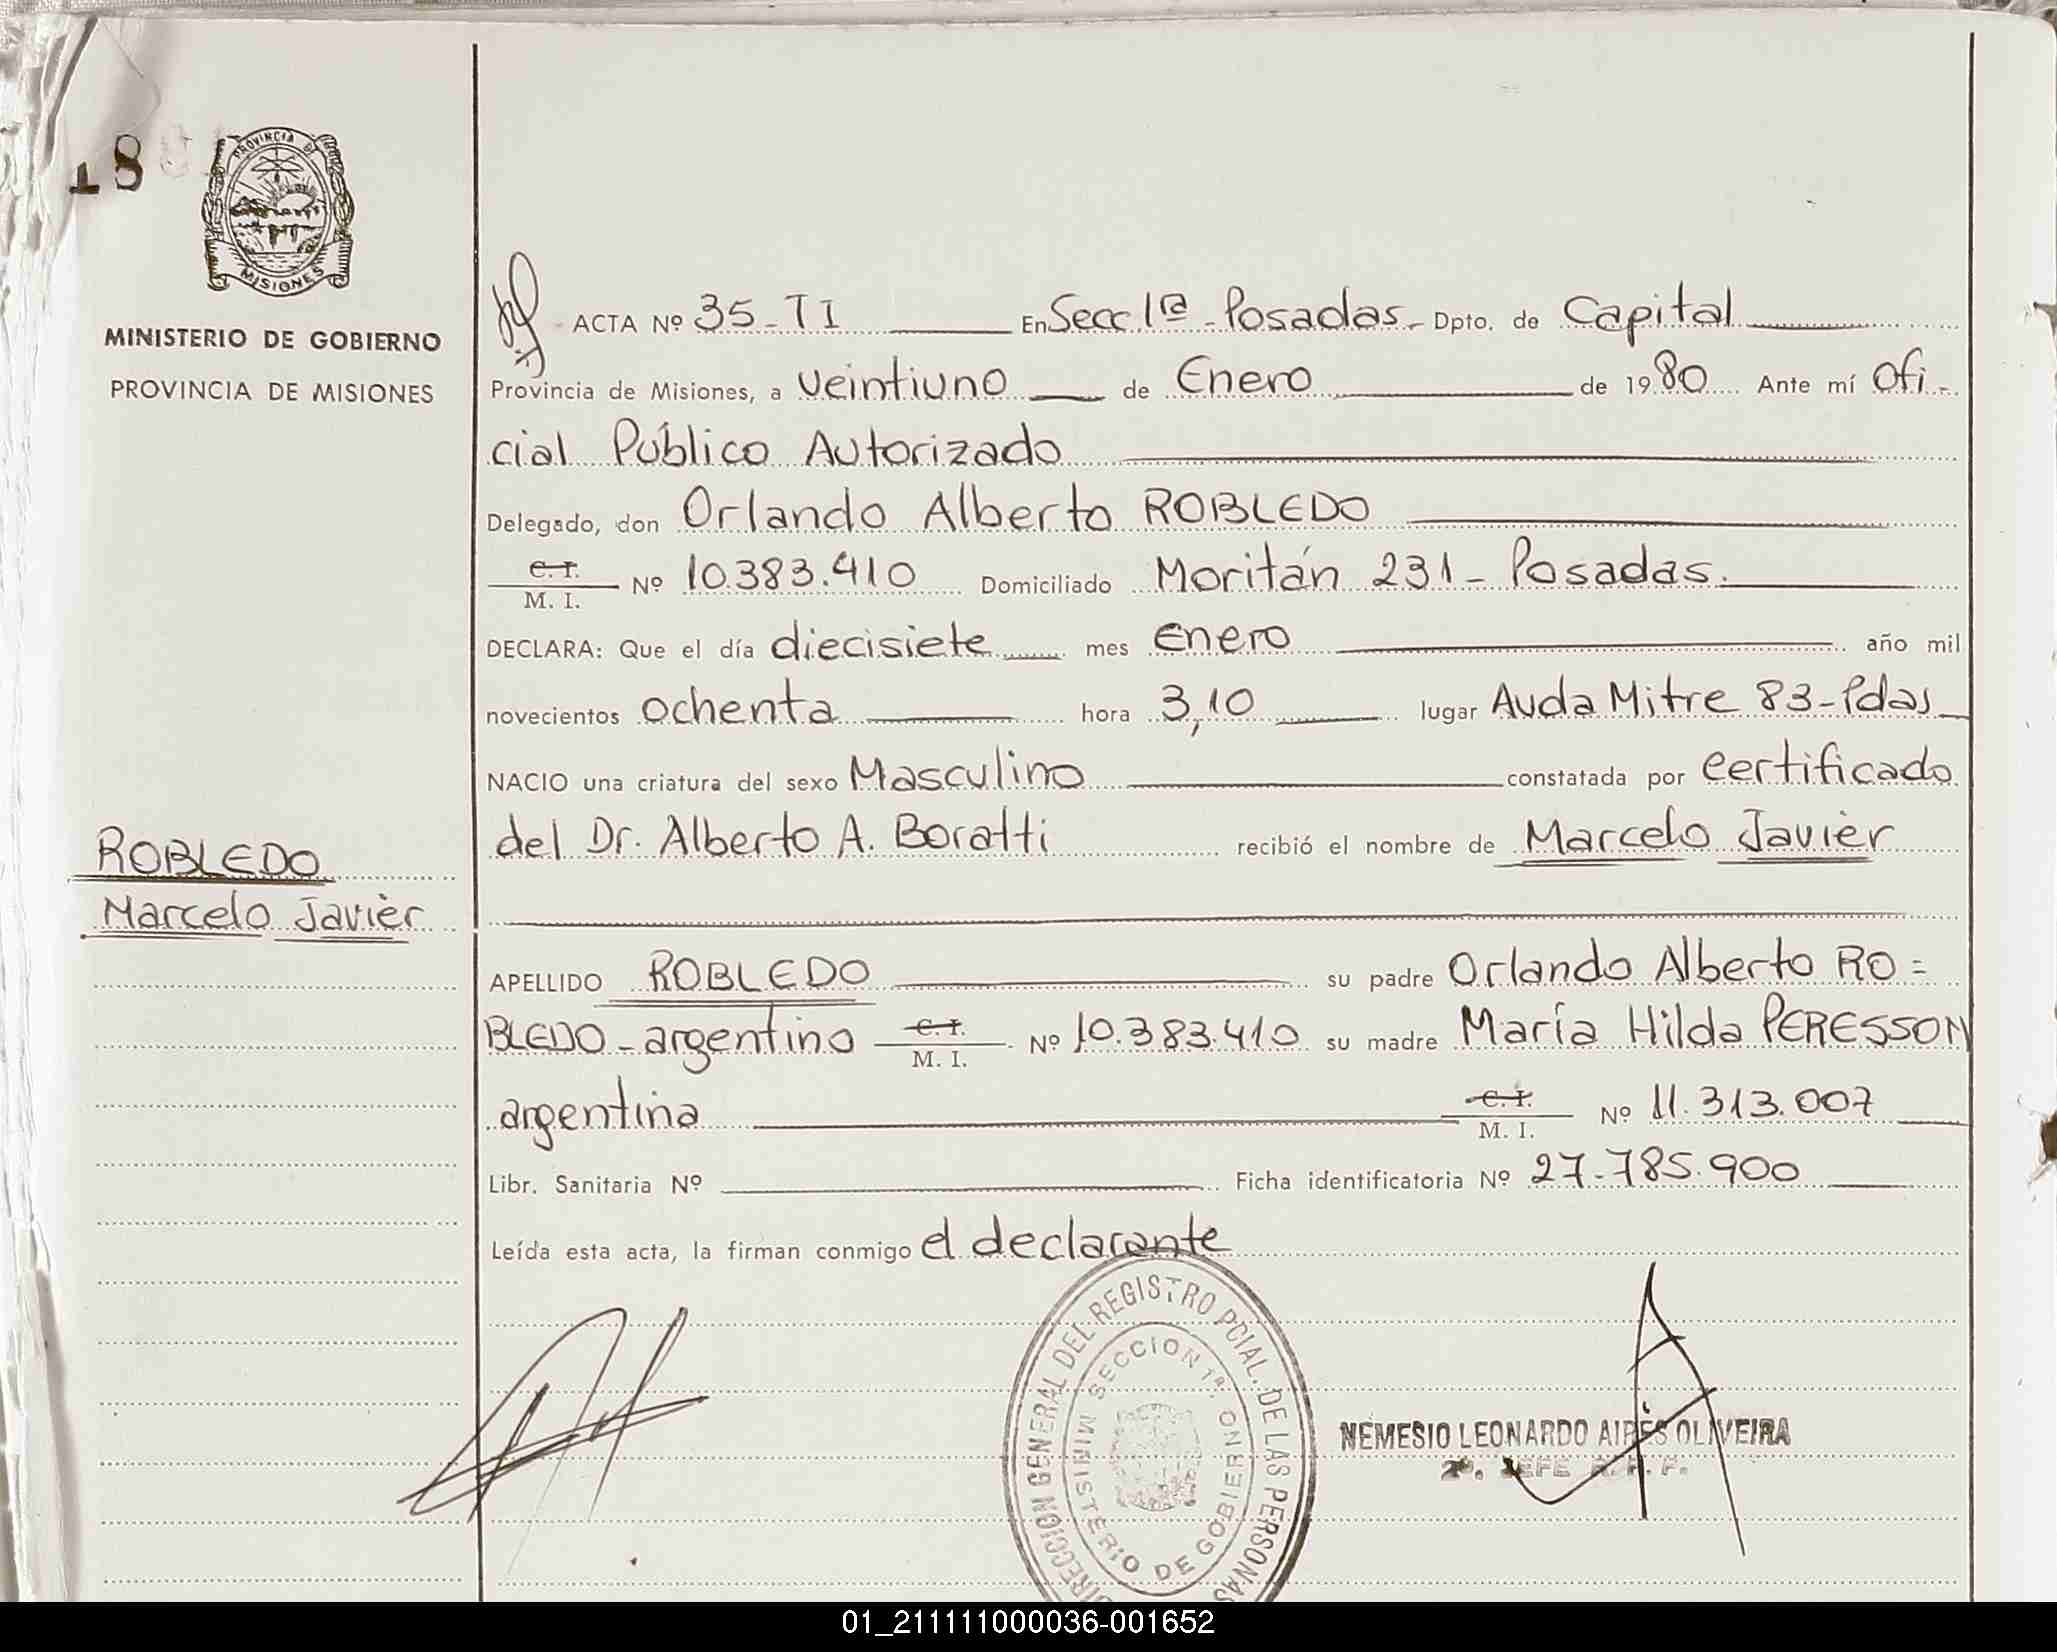 18
PROVINCIA DE
MISIONES
MINISTERIO DE GOBIERNO
PROVINCIA DE MISIONES
ROBLEDO
Marcelo Javièr
ACTA Nº 35-TI En Secc 1ª - Posadas - Dpto. de Capital
Provincia de Misiones, a veintiuno de Enero de 1980 Ante mí Ofi-
cial Público Autorizado
Delegado, don Orlando Alberto ROBLEDO
C. I.
M. I. Nº 10.383.410 Domiciliado Moritán 231 - Posadas.
DECLARA: Que el día diecisiete mes Enero año mil
novecientos ochenta hora 3,10 lugar Avda Mitre 83-Pdas
NACIO una criatura del sexo Masculino constatada por certificado
del Dr. Alberto A. Boratti recibió el nombre de Marcelo Javièr
APELLIDO ROBLEDO su padre Orlando Alberto RO=
BLEDO - argentino C. I. M. I. Nº 10.383.410 su madre María Hilda PERESSON
argentina C. I. M. I. Nº 11.313.007
Libr. Sanitaria Nº Ficha identificatoria Nº 27-785.900
Leída esta acta, la firman conmigo el declarante
DIRECCION GENERAL DEL REGISTRO PCIAL. DE LAS PERSONAS
SECCION 1ª.
MINISTERIO DE GOBIERNO
NEMESIO LEONARDO AIRES OLIVEIRA
JEFE
01_211111000036-001652